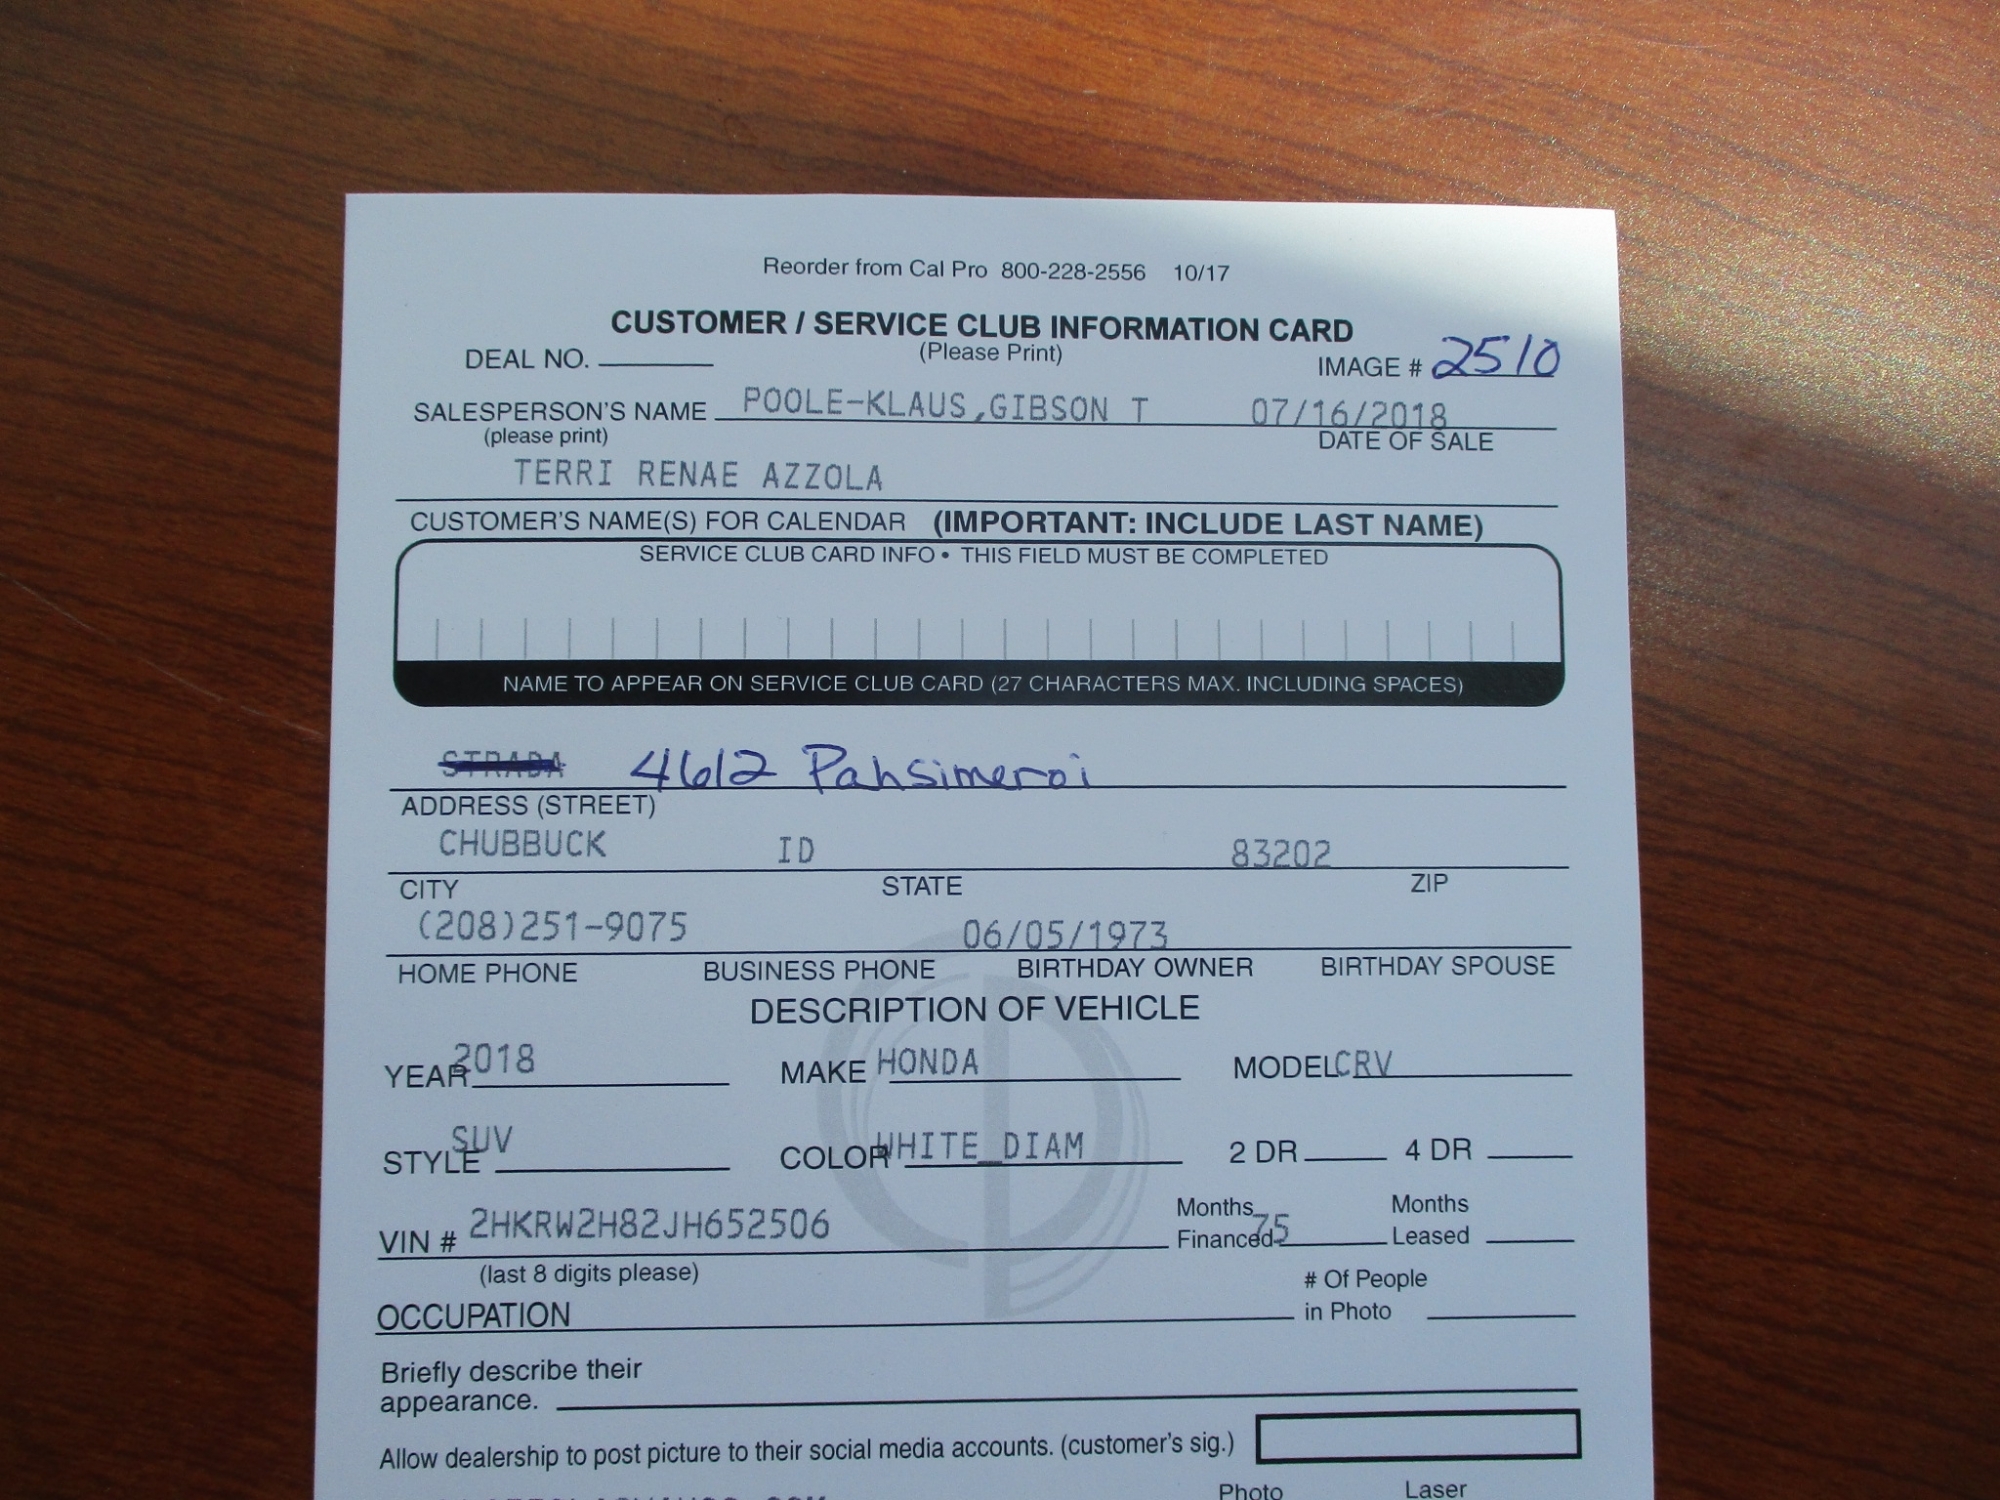 Reorder from Cal Pro 800-228-2556 10/17
CUSTOMER / SERVICE CLUB INFORMATION CARD
DEAL NO. (Please Print) IMAGE # 2510
SALESPERSON'S NAME POOLE-KLAUS,GIBSON T 07/16/2018
(please print) DATE OF SALE
TERRI RENAE AZZOLA
CUSTOMER'S NAME(S) FOR CALENDAR (IMPORTANT: INCLUDE LAST NAME)
SERVICE CLUB CARD INFO • THIS FIELD MUST BE COMPLETED
NAME TO APPEAR ON SERVICE CLUB CARD (27 CHARACTERS MAX. INCLUDING SPACES)
STRADA 4612 Pahsimeroi
ADDRESS (STREET)
CHUBBUCK ID 83202
CITY STATE ZIP
(208)251-9075 06/05/1973
HOME PHONE BUSINESS PHONE BIRTHDAY OWNER BIRTHDAY SPOUSE
DESCRIPTION OF VEHICLE
YEAR 2018 MAKE HONDA MODEL CRV
STYLE SUV COLOR WHITE DIAM 2 DR 4 DR
VIN # 2HKRW2H82JH652506 Months Financed 75 Months Leased
(last 8 digits please) # Of People
OCCUPATION in Photo
Briefly describe their
appearance.
Allow dealership to post picture to their social media accounts. (customer's sig.)
Photo Laser